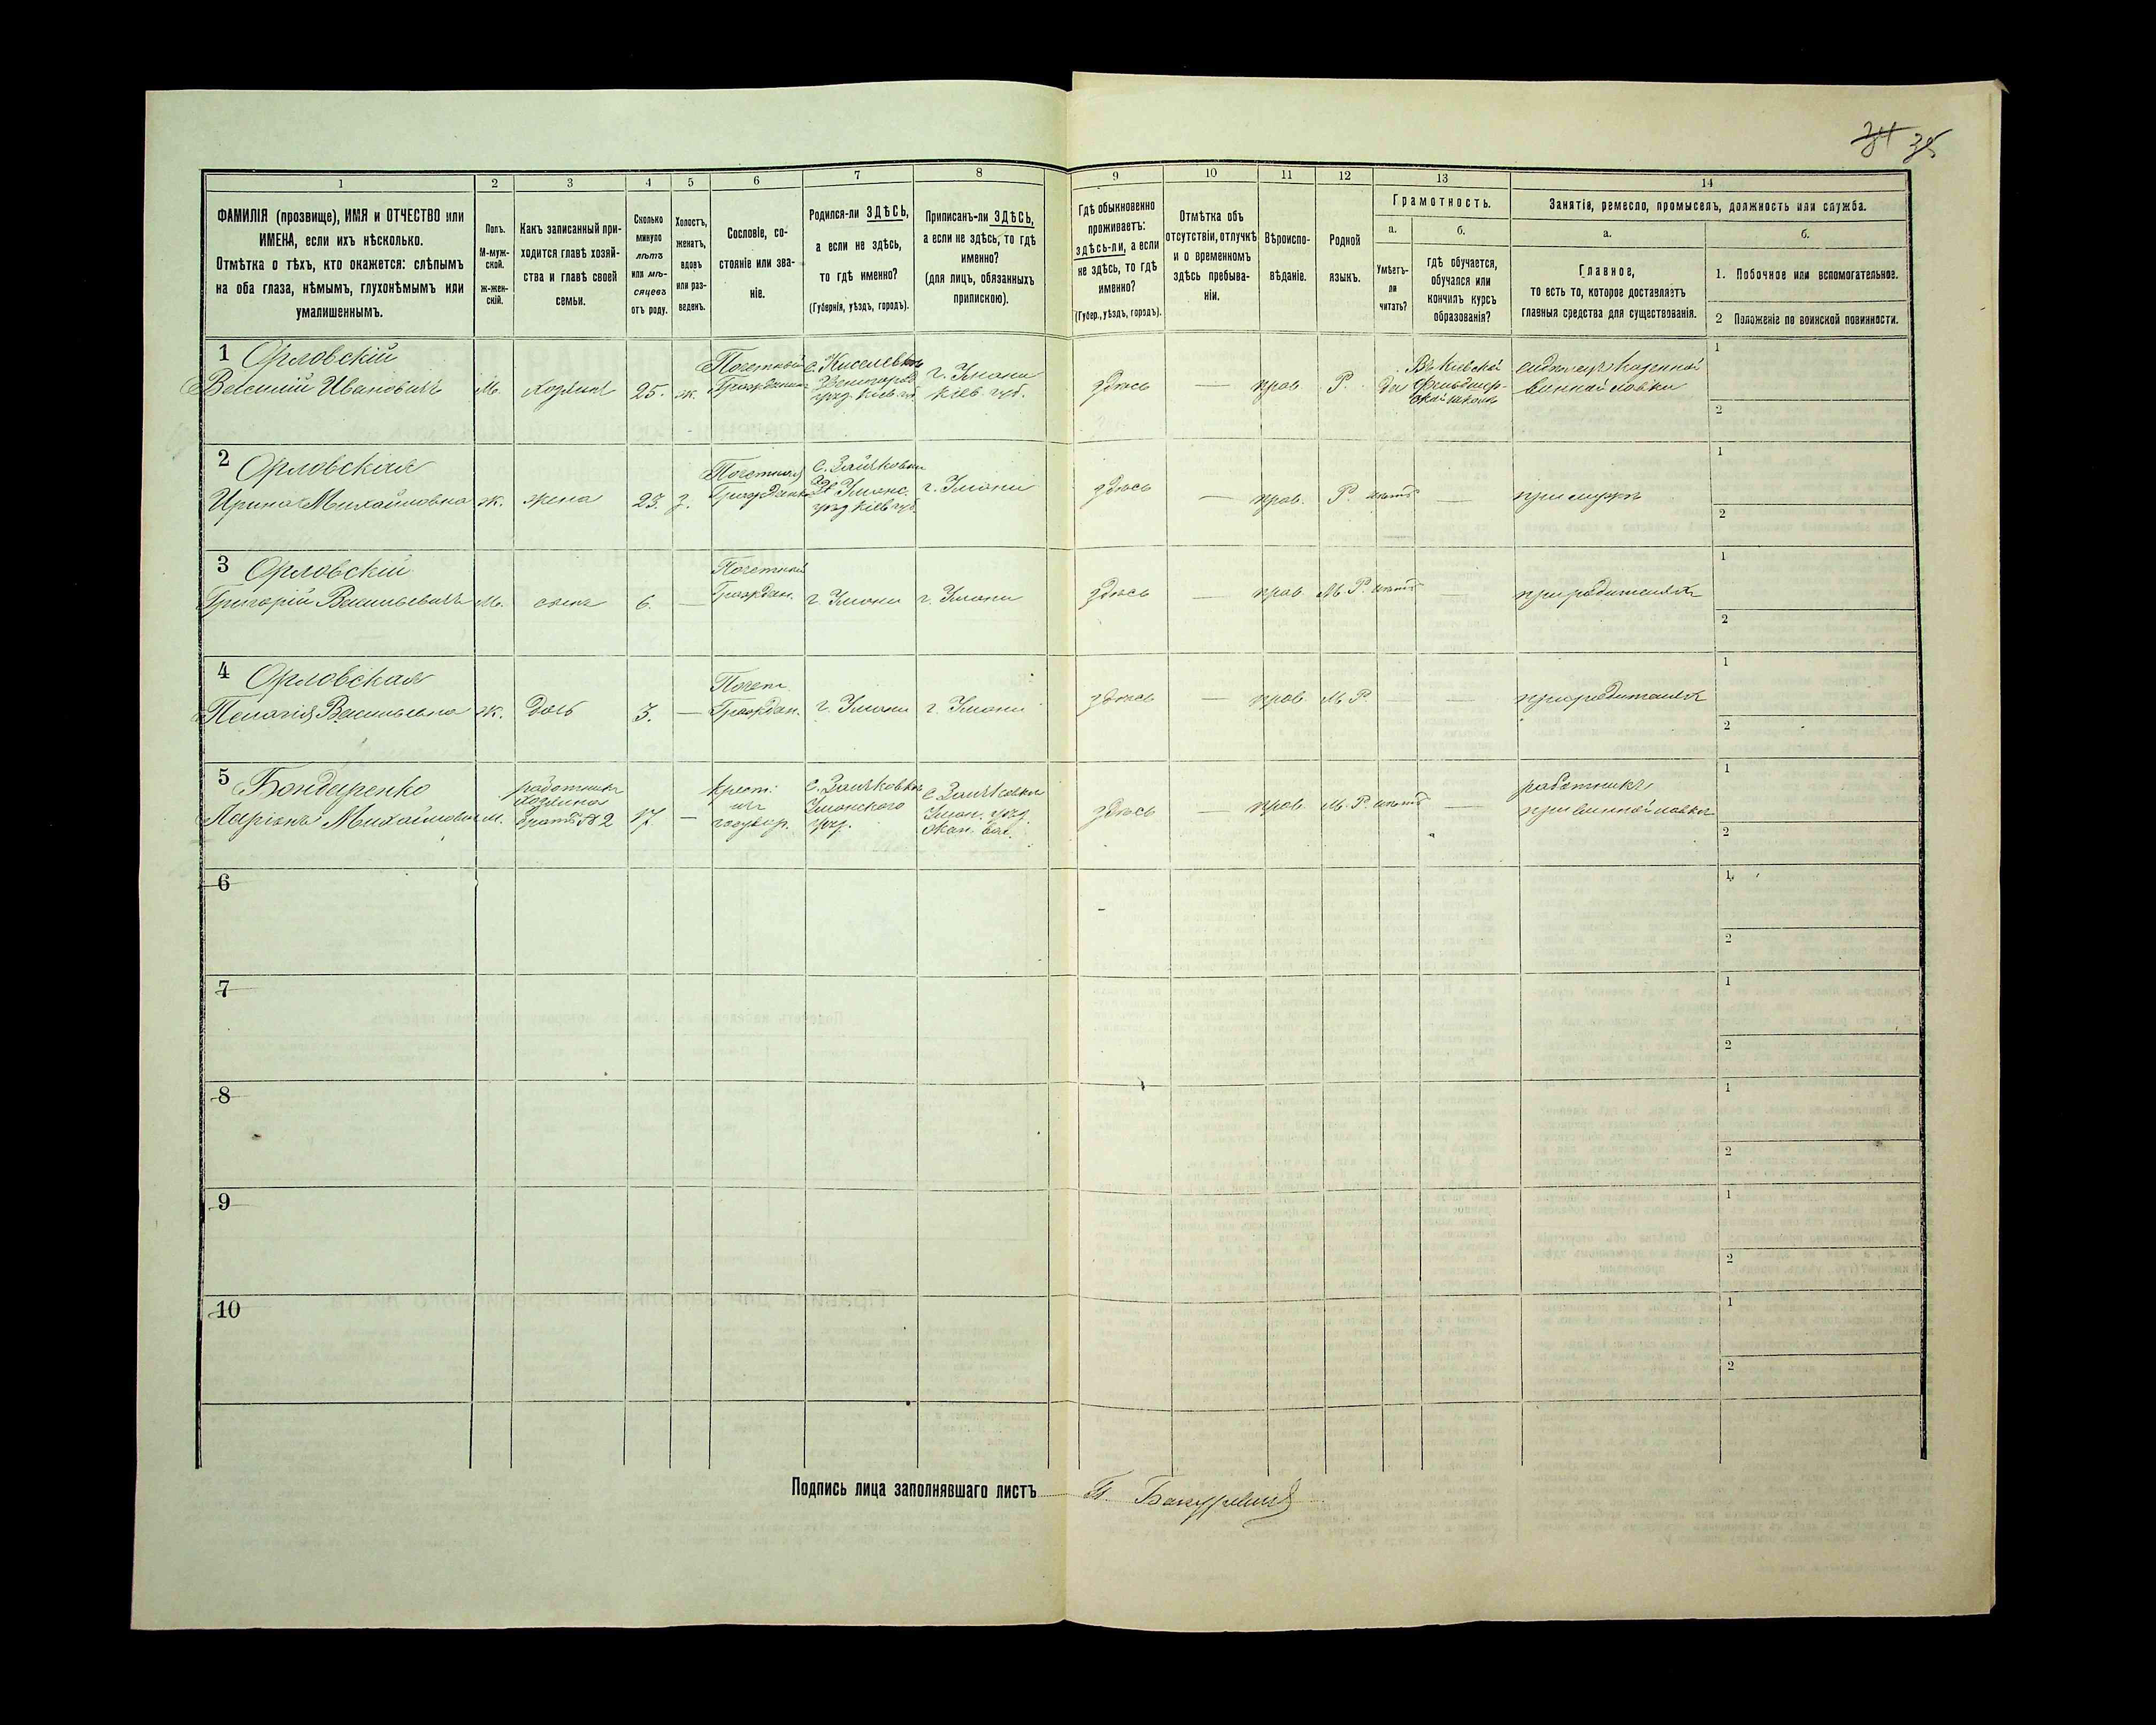 34 35
1
2
3
4
5
6
7
8
9
10
11
12
13
14
ФАМИЛІЯ (прозвище), ИМЯ и ОТЧЕСТВО или
ИМЕНА, если ихъ нѣсколько.
Отмѣтка о тѣхъ, кто окажется: слѣпымъ
на оба глаза, нѣмымъ, глухонѣмымъ или
умалишеннымъ.
Полъ.
М-муж-
ской.
Ж-жен-
скій.
Какъ записанный при-
ходится главѣ хозяй-
ства и главѣ своей
семьи.
Сколько
минуло
лѣтъ
или мѣ-
сяцевъ
отъ роду.
Холостъ,
женатъ,
вдовъ
или раз-
веденъ.
Сословіе, со-
стояніе или зва-
ніе.
Родился-ли ЗДѢСЬ,
а если не здѣсь,
то гдѣ именно?
(Губернія, уѣздъ, городъ).
Приписанъ-ли ЗДѢСЬ,
а если не здѣсь, то гдѣ
именно?
(для лицъ, обязанныхъ
припискою).
Гдѣ обыкновенно
проживаетъ:
здѣсь-ли, а если
не здѣсь, то гдѣ
именно?
(Губер., уѣздъ, городъ).
Отмѣтка объ
отсутствіи, отлучкѣ
и о временномъ
здѣсь пребыва-
ніи.
Вѣроиспо-
вѣданіе.
Родной
языкъ.
Грамотность.
а.
Умѣетъ-
ли
читать?
б.
гдѣ обучается,
обучался или
кончилъ курсъ
образованія?
Занятія, ремесло, промыселъ, должность или служба.
а.
Главное,
то есть то, которое доставляетъ
главныя средства для существованія.
б.
1. Побочное или вспомогательное.
2 Положеніе по воинской повинности.
1 Орловскій
Василій Ивановичъ
М.
хозяинъ
25.
ж.
Почетный
Гражданинъ
с. Киселевка
Звенигород.
уѣзд. Кіев. губ.
г. Умани
Кіев. губ.
здѣсь
—
прав.
Р.
да
Въ Кіевской
Фельдшер-
ской школѣ
сидѣлецъ казенной
винной лавки
1
2
2 Орловская
Ирина Михайловна
ж.
жена
23.
з.
Почетная
Гражданка
с. Заячковка
Уманс.
уѣзд Кіев губ.
г. Умани
здѣсь
—
прав.
Р.
нѣтъ
—
при мужѣ
1
2
3 Орловскій
Григорій Васильевичъ
М.
сынъ
6.
—
Почетный
Граждан.
г. Умани
г. Умани
здѣсь
—
прав.
М. Р.
нѣтъ
—
при родителяхъ
1
2
4 Орловская
Пелагія Васильевна
ж.
дочь
3.
—
Почет.
Граждан.
г. Умани
г. Умани
здѣсь
—
прав.
М. Р.
—
—
при родителяхъ
1
2
5 Бондаренко
Ларіонъ Михайлович
М.
работникъ
хозяина
братъ № 2
17.
—
крест.
изъ
государ.
с. Заячковка
Уманского
уѣзд.
с. Заячковка
Уман. уѣзд.
вол.
здѣсь
—
прав.
М. Р.
нѣтъ
—
работникъ
при винной лавкѣ
1
2
6
1
2
7
1
2
8
1
2
9
1
2
10
1
2
Подпись лица заполнявшаго листъ